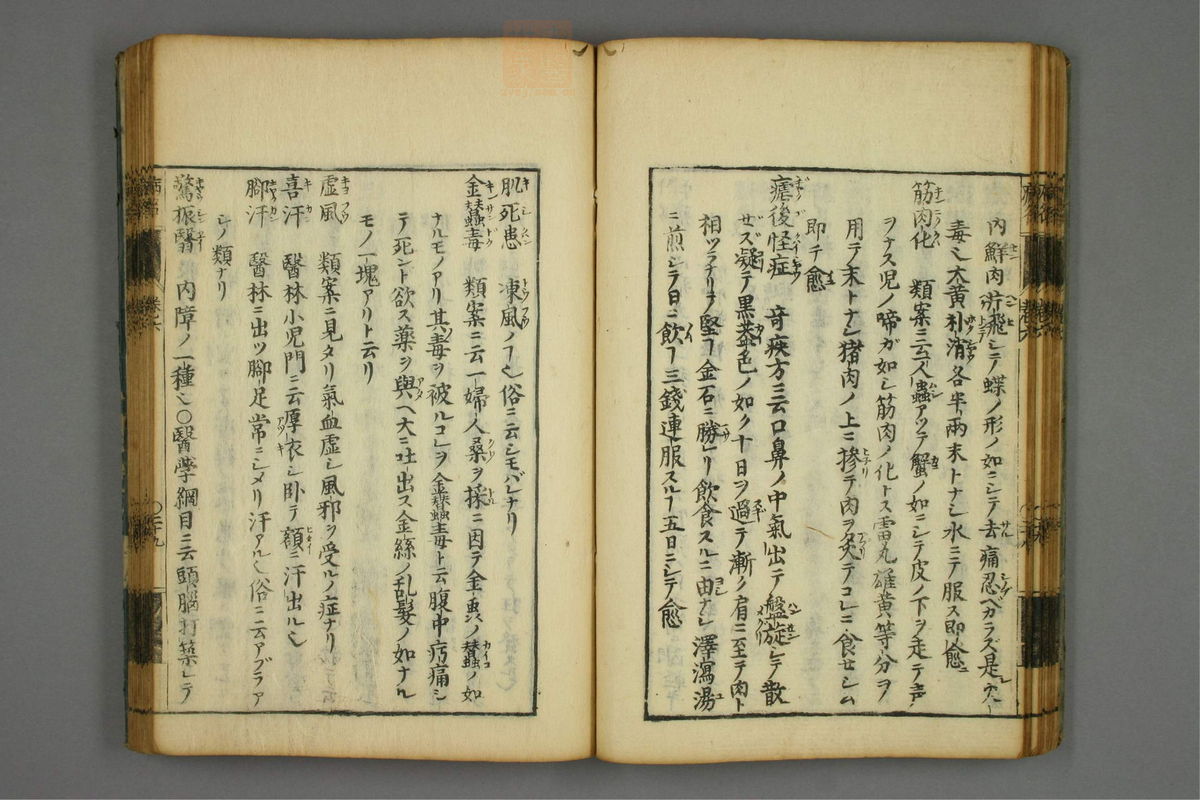 内鮮肉游飛シテ蝶ノ形ノ如ニシテ去痛忍ベカラズ是
毒也大黄朴消各半兩末トナシ水ニテ服ス即愈
筋肉化 類案ニ云人蟲アツテ蟹ノ如ニシテ皮ノ下ヲ走テ声
ヲナス児ノ啼ガ如シ筋肉ノ化トス雷丸雄黄等分ヲ
用テ末トナシ猪肉ノ上ニ摻テ肉ヲ炙テコレヲ食セシム
即チ愈
瘧後怪症 奇疾方ニ云口鼻ノ中氣出テ盤旋シテ散
セズ凝テ黒蓋色ノ如ク十日ヲ過テ漸ク肩ニ至テ肉ト
相ツラナリテ堅フ金石ニ勝レリ飲食スルニ由ナシ澤瀉湯
ニ煎シテ日ニ飲フ三錢連服スルフ五日ニシテ愈
肌死患 凍風ノフ也俗ニ云シモバレナリ
金蠶毒 類案ニ云一婦人桑ヲ採ニ因テ金虫ノ蠶ノ如
ナルモノアリ其毒ヲ被ルコレヲ金蠶蟲毒ト云腹中㽲痛シ
テ死ント欲ス藥ヲ與ヘ大ニ吐出ス金絲ノ乱髪ノ如ナル
モノ一塊アリト云リ
虚風 類案ニ見タリ氣血虚シ風邪ヲ受ルノ症ナリ
喜汗 醫林小児門ニ云厚衣シ卧テ額ニ汗出ル也
腳汗 醫林ニ出ツ腳足常ニシメリ汗アル也俗ニ云アブラア
シノ類ナリ
驚振翳 内障ノ一種也〇醫學綱目ニ云頭腦打築シテ
卷六
〇二十九